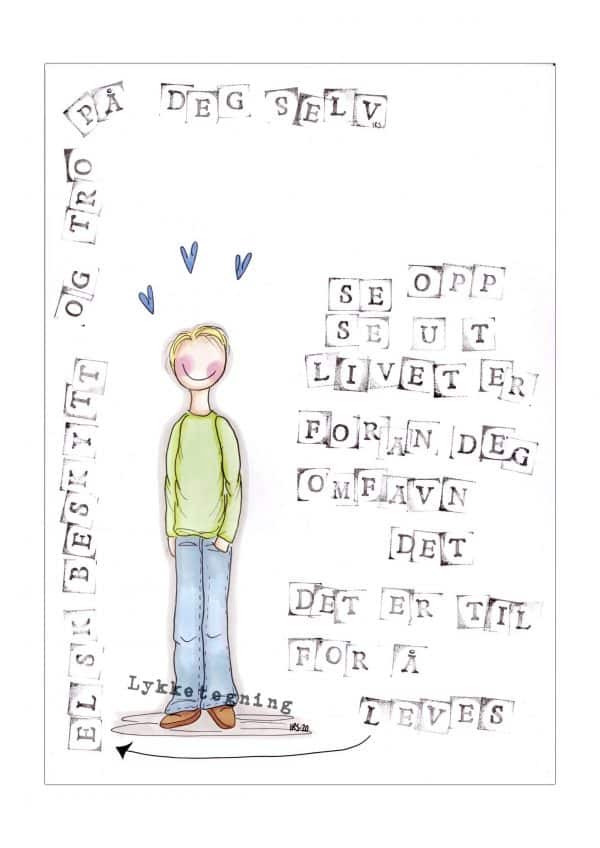 SE OPP
SE UT
LIVET ER
FORAN DEG
OMFAVN
DET
DET ER TIL
FOR Å
LEVES
ELSK BESKYTT OG TRO
PÅ DEG SELV
Lykketegning
IRS-20